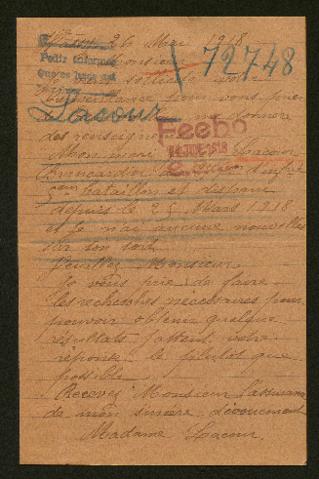 26 Mai 1918
Pedir informes
72748
Monsieur
Lacour
bienveillance pour vous prier
me donner
des renseignements
Fecho
JUN 1918
Mon mari Lacour
Brancardier
bataillon est disparu
depuis le 25 Mars 1918
et je n'ai aucune nouvelles
sur son sort
Veuillez Monsieur
Je vous prie de faire
les recherches nécessaires pour
pouvoir obtenir quelque
résultats j'attent votre
réponse le plutôt que
possible
Recevez Monsieur l'assurance
de mon sincère dévouement
Madame Lacour